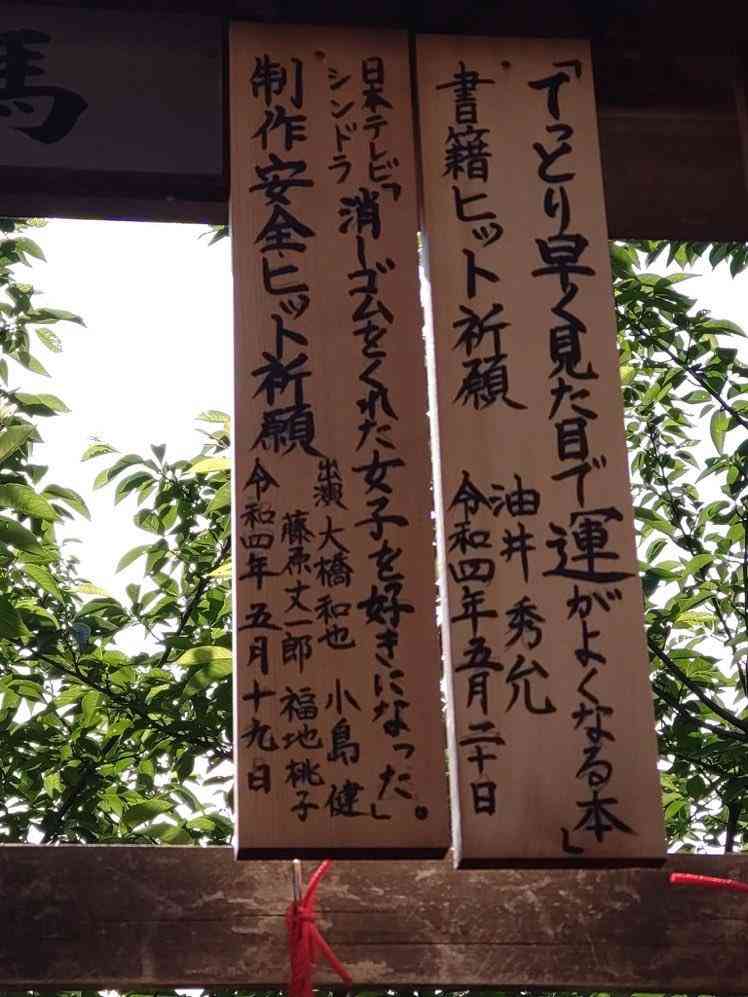 「てっとり早く見た目で運がよくなる本」
書籍ヒット祈願
油井秀允
令和四年五月二十日
日本テレビ
シンドラ
「消しゴムをくれた女子を好きになった」。
制作安全ヒット祈願
出演 大橋和也 小島 健
藤原丈一郎 福地桃子
令和四年 五月十九日
馬